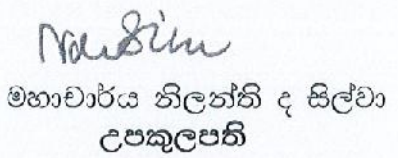 මහාචාර්ය නිලන්ති ද සිල්වා
උපකුලපති